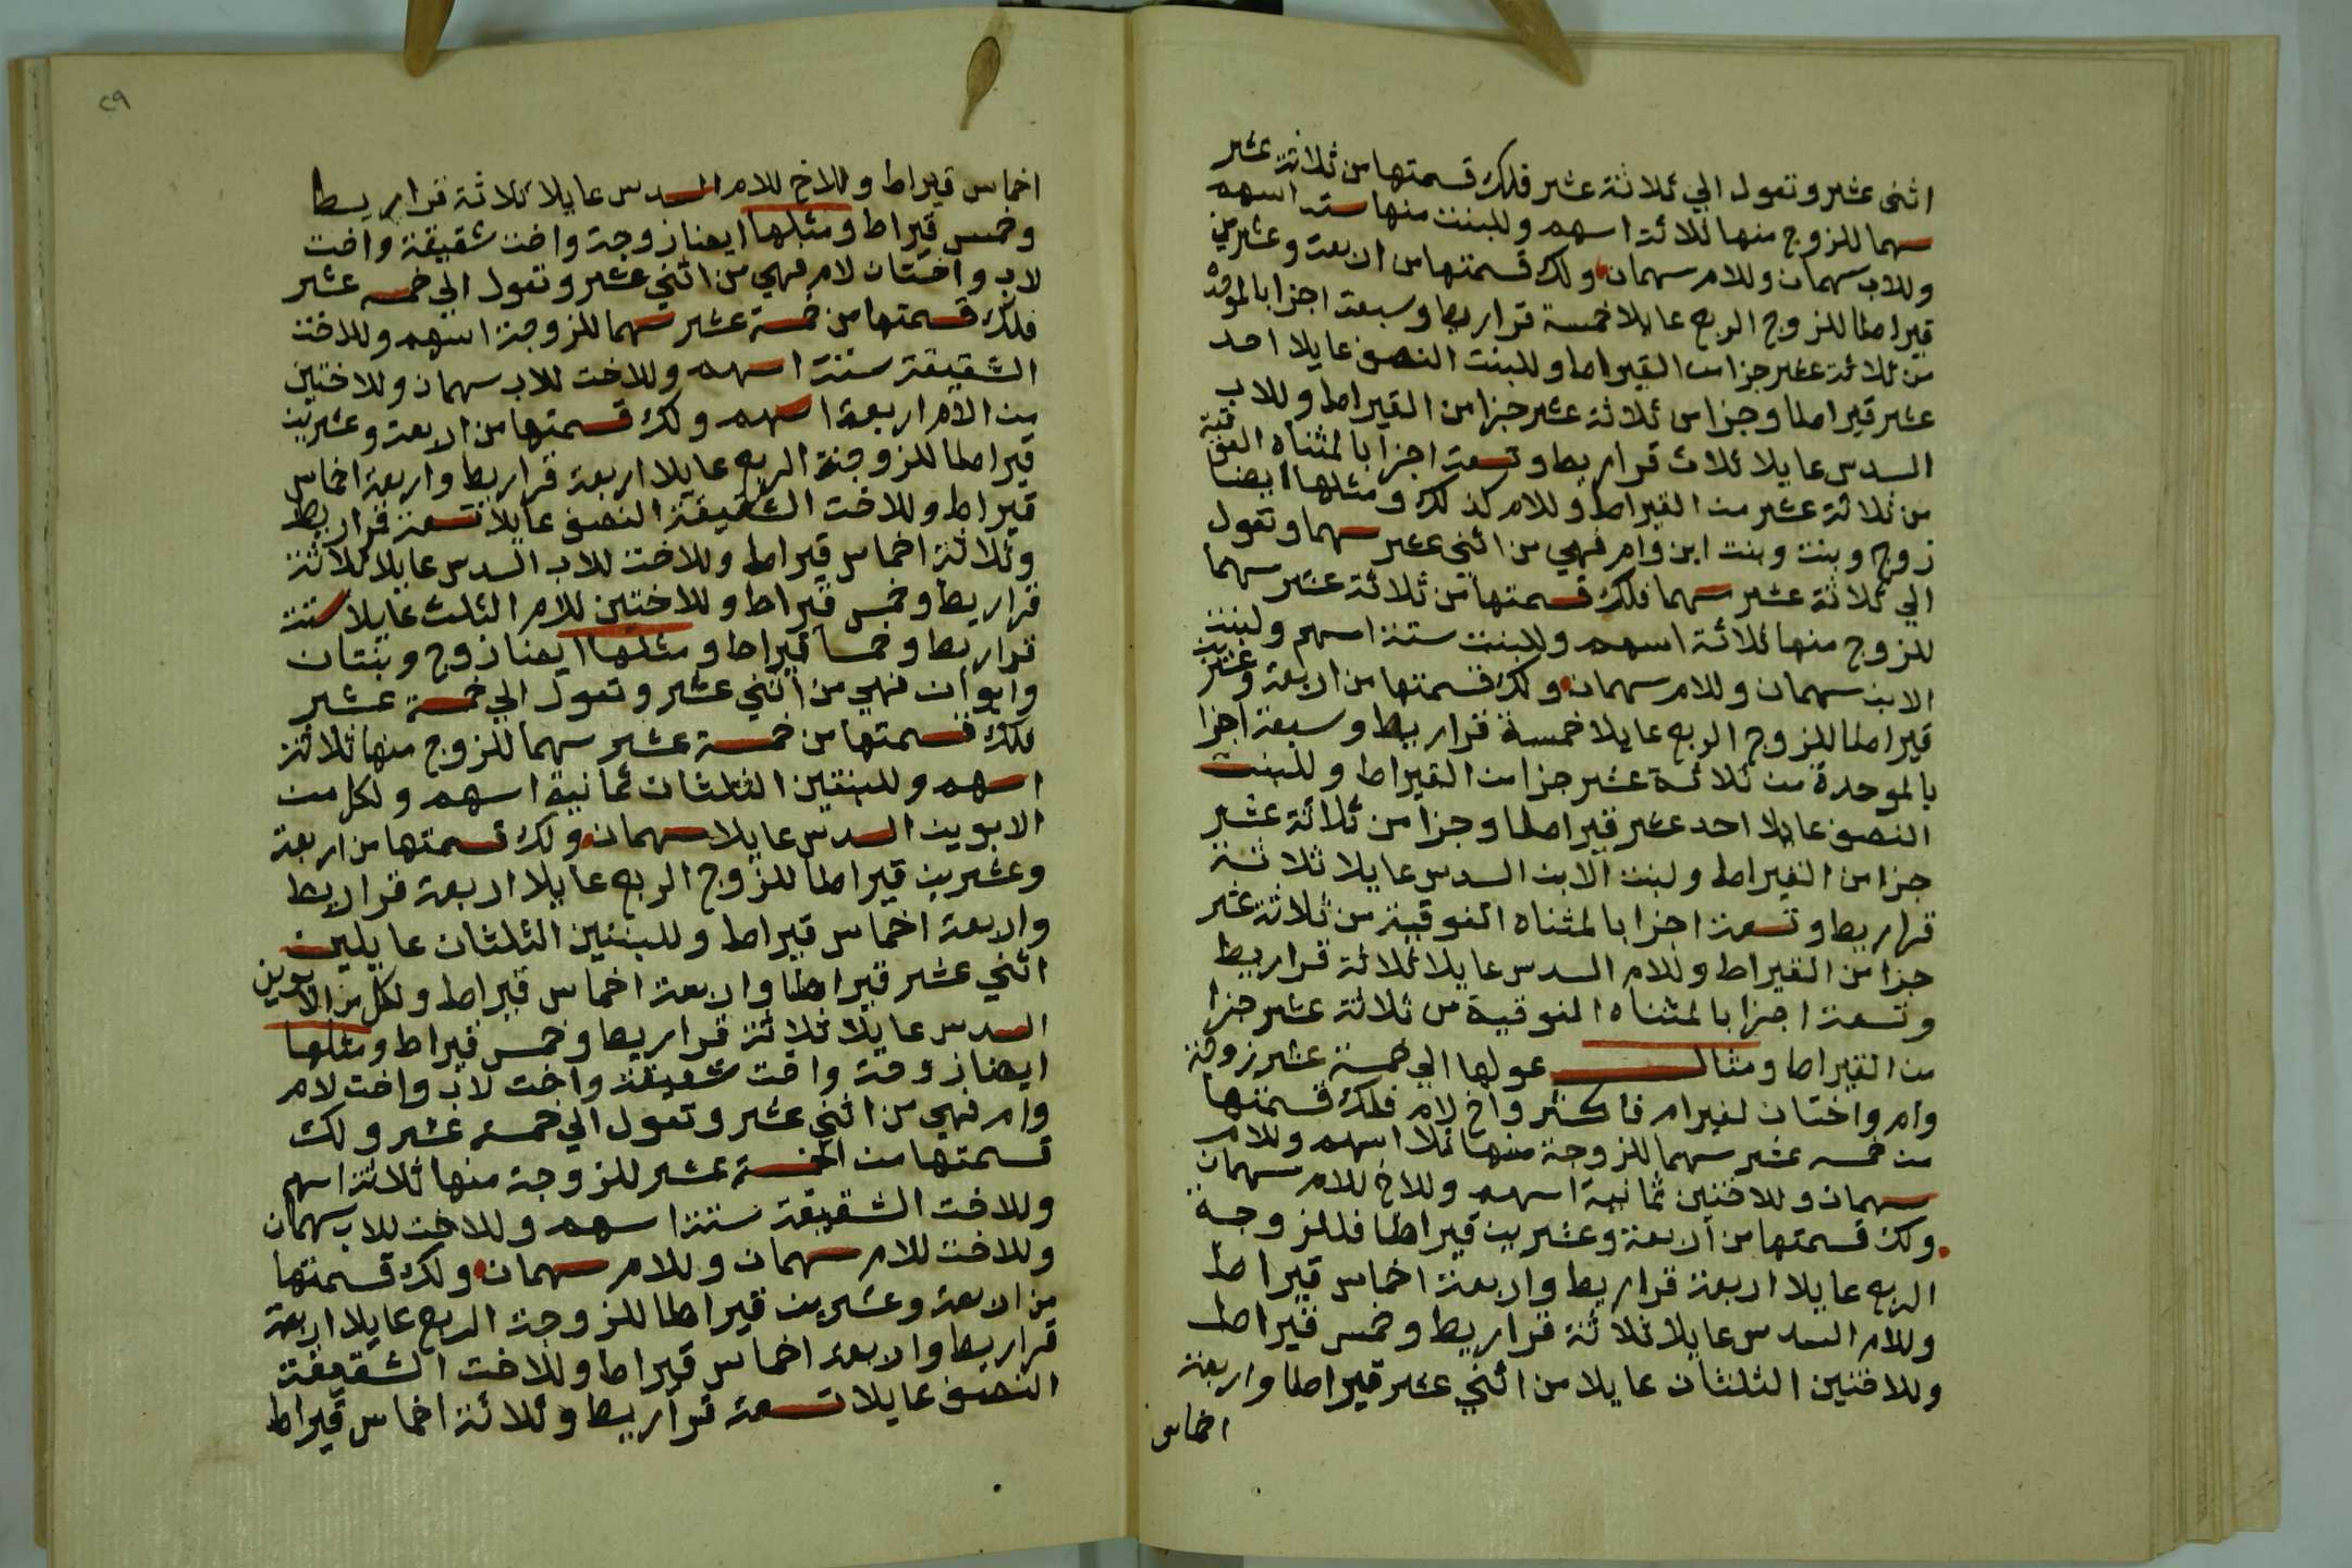 اثنى عشر وتعول الي ثلاثة عشر فلك قسمتها من ثلاثة عشر
سهما للزوج منها ثلاثة اسهم وللبنت منها ستة اسهم
وللاب سهمان وللام سهمان ولك قسمتها من اربعة وعشرين
قيراطا للزوج الربع عايلا خمسة قراريط وسبعة اجزا بالموحدة
من ثلاثة عشر جزا من القيراط وللبنت النصف عايلا احد
عشر قيراطا وجزا من ثلاثة عشر جزا من القيراط وللاب
السدس عايلا ثلاث قراريط وتسعة اجزا بالمثناه الفوقية
من ثلاثة عشر من القيراط وللام كذلك ومثلها ايضا
زوج وبنت وبنت ابن وام فهي من اثني عشر سهما وتعول
الي ثلاثة عشر سهما فلك قسمتها من ثلاثة عشر سهما
للزوج منها ثلاثة اسهم وللبنت ستة اسهم ولبنت
الابن سهمان وللام سهمان ولك قسمتها من اربعة وعشرين
قيراطا للزوج الربع عايلا خمسة قراريط وسبعة اجزا
بالموحدة من ثلاثة عشر جزا من القيراط وللبنت
النصف عايلا احد عشر قيراطا وجزا من ثلاثة عشر
جزا من القيراط ولبنت الابن السدس عايلا ثلاثة
قراريط وتسعة اجزا بالمثناه الفوقية من ثلاثة عشر
جزا من القيراط وللام السدس عايلا ثلاثة قراريط
وتسعة اجزا بالمثناه الفوقية من ثلاثة عشر جزا
من القيراط ومثال عولها الي خمسة عشر زوجة
وام واختان لغير ام فاكثر واخ لام فلك قسمتها
من خمسة عشر سهما للزوجة منها ثلاا اسهم وللام
سهمان وللاختين ثمانية اسهم وللاخ للام سهمان
ولك قسمتها من اربعة وعشرين قيراطا فللزوجة
الربع عايلا اربعة قراريط واربعة اخماس قيراط
وللام السدس عايلا ثلاثة قراريط وخمس قيراط
وللاختين الثلثان عايلا من اثني عشر قيراطا واربعة
اخماس
٢٩
اخماس قيراط وللاخ للام السدس عايلا ثلاثة قراريط
وخمس قيراط ومثلها ايضا زوجة واخت شقيقة واخت
لاب واختان لام فهي من اثني عشر وتعول الي خمسة عشر
فلك قسمتها من خمسة عشر سهما للزوجة اسهم وللاخت
الشقيقة ستة اسهم وللاخت للاب سهمان وللاختين
من الام اربعة اسهم ولك قسمتها من اربعة وعشرين
قيراطا للزوجة الربع عايلا اربعة قراريط واربعة اخماس
قيراط وللاخت الشقيقة النصف عايلا تسعة قراريط
وثلاثة اخماس قيراط وللاخت للاب السدس عايلا ثلاثة
قراريط وخمس قيراط وللاختين للام الثلث عايلا ستة
قراريط وخمسا قيراط ومثلها ايضا زوج وبنتان
وابوان فهي من اثني عشر وتعول الي خمسة عشر
فلك قسمتها من خمسة عشر سهما للزوج منها ثلاثة
اسهم وللبنتين الثلثان ثمانية اسهم ولكل من
الابوين السدس عايلا سهمان ولك قسمتها من اربعة
وعشرين قيراطا للزوج الربع عايلا اربعة قراريط
واربعة اخماس قيراط وللبنتين الثلثان عايلين
اثني عشر قيراطا واربعة اخماس قيراط ولكل من الابوين
السدس عايلا ثلاثة قراريط وخمس قيراط ومثلها
ايضا زوجة واخت شقيقة واخت لاب واخت لام
وام فهي من اثني عشر وتعول الي خمسة عشر ولك
قسمتها من الخمسة عشر للزوجة منها ثلاثة اسهم
وللاخت الشقيقة ستة اسهم وللاخت للاب سهمان
وللاخت للام سهمان وللام سهمان ولك قسمتها
من اربعة وعشرين قيراطا للزوجة الربع عايلا اربعة
قراريط واربعة اخماس قيراط وللاخت الشقيقة
النصف عايلا تسعة قراريط وثلاثة اخماس قيراط